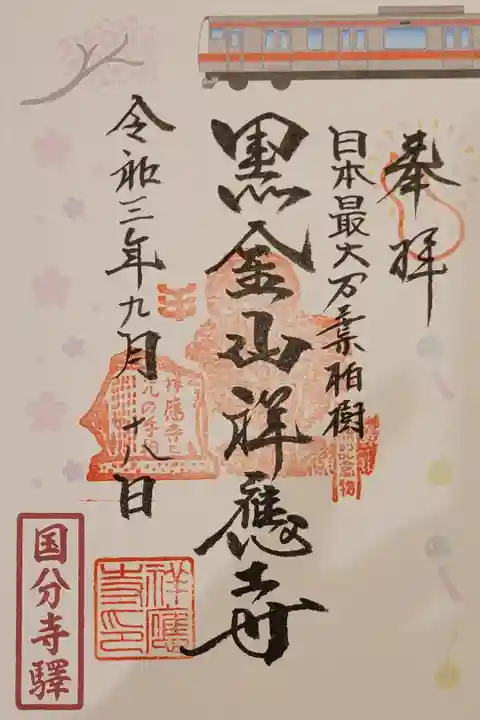 奉拝
日本最大万葉柏樹
黒金山祥應寺
令和三年九月十八日
祥應寺印
国分寺驛